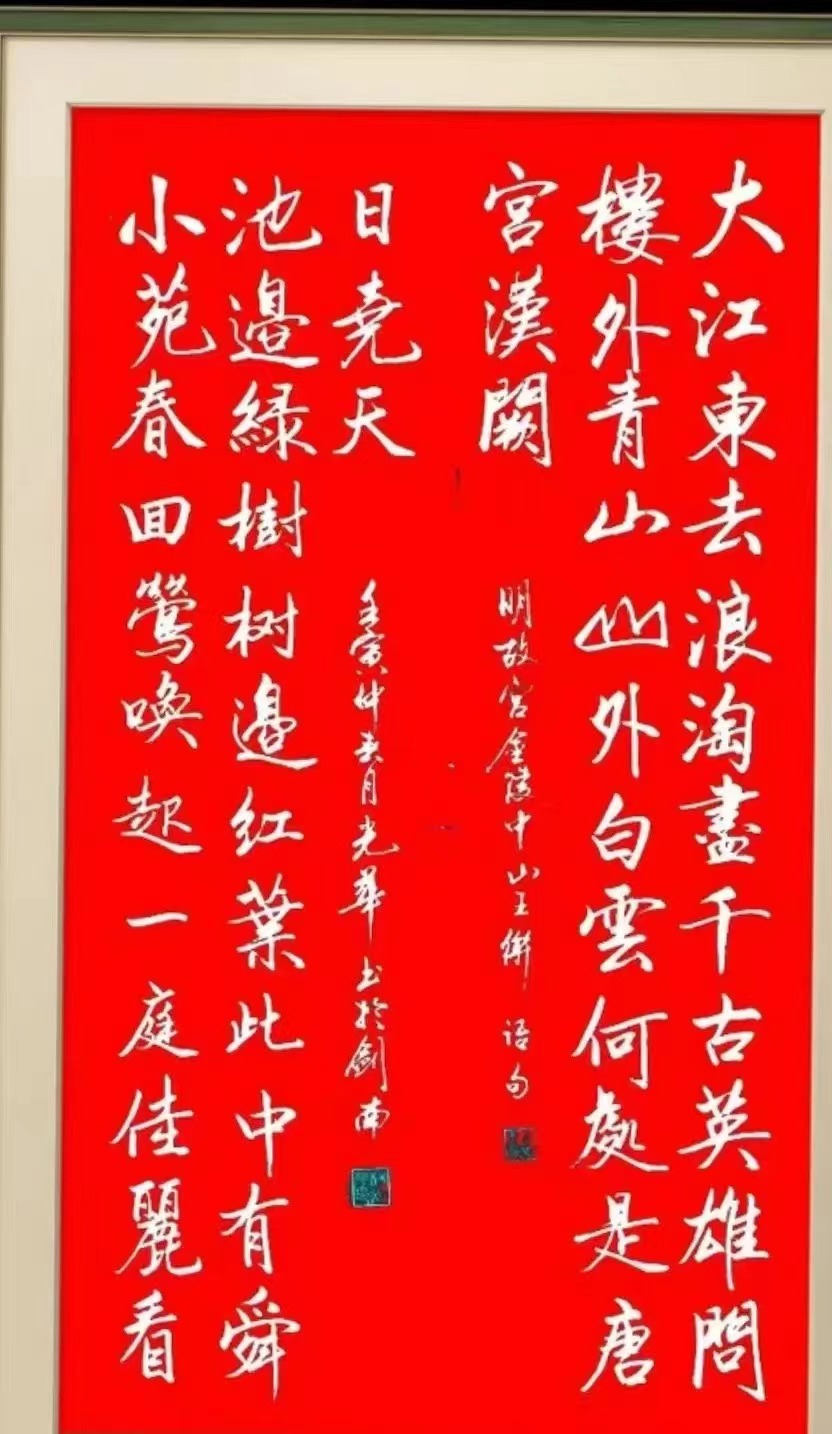 大江東去浪淘盡千古英雄問
樓外青山山外白雲何處是唐
宮漢闕
明故宫金陵中山王语句
小苑春回鶯喚起一庭佳麗看
池邊綠樹树邊红葉此中有舜
日堯天
壬寅仲春月光華书於劍南